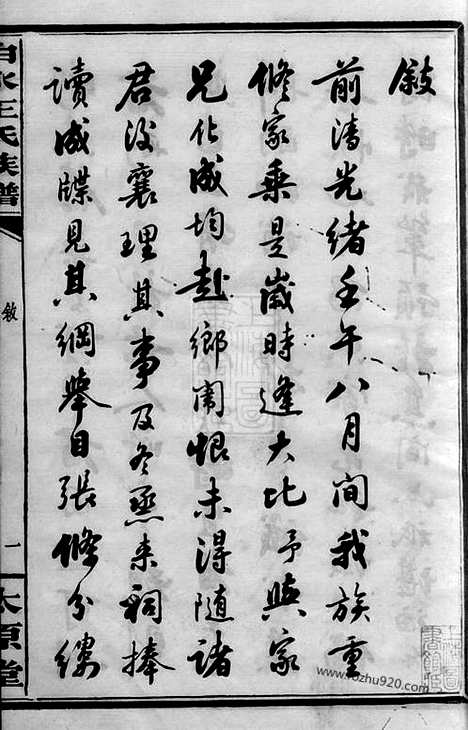 敍
前清光緒壬午八月間我族重
修家乘是歲時逢大比予與家
兄化成均赴鄉闈恨未得隨諸
君後襄理其事及冬烝來祠捧
讀成牒見其綱舉目張條分縷
白水王氏族譜
敘
一
太原堂
www.fozhu920.com